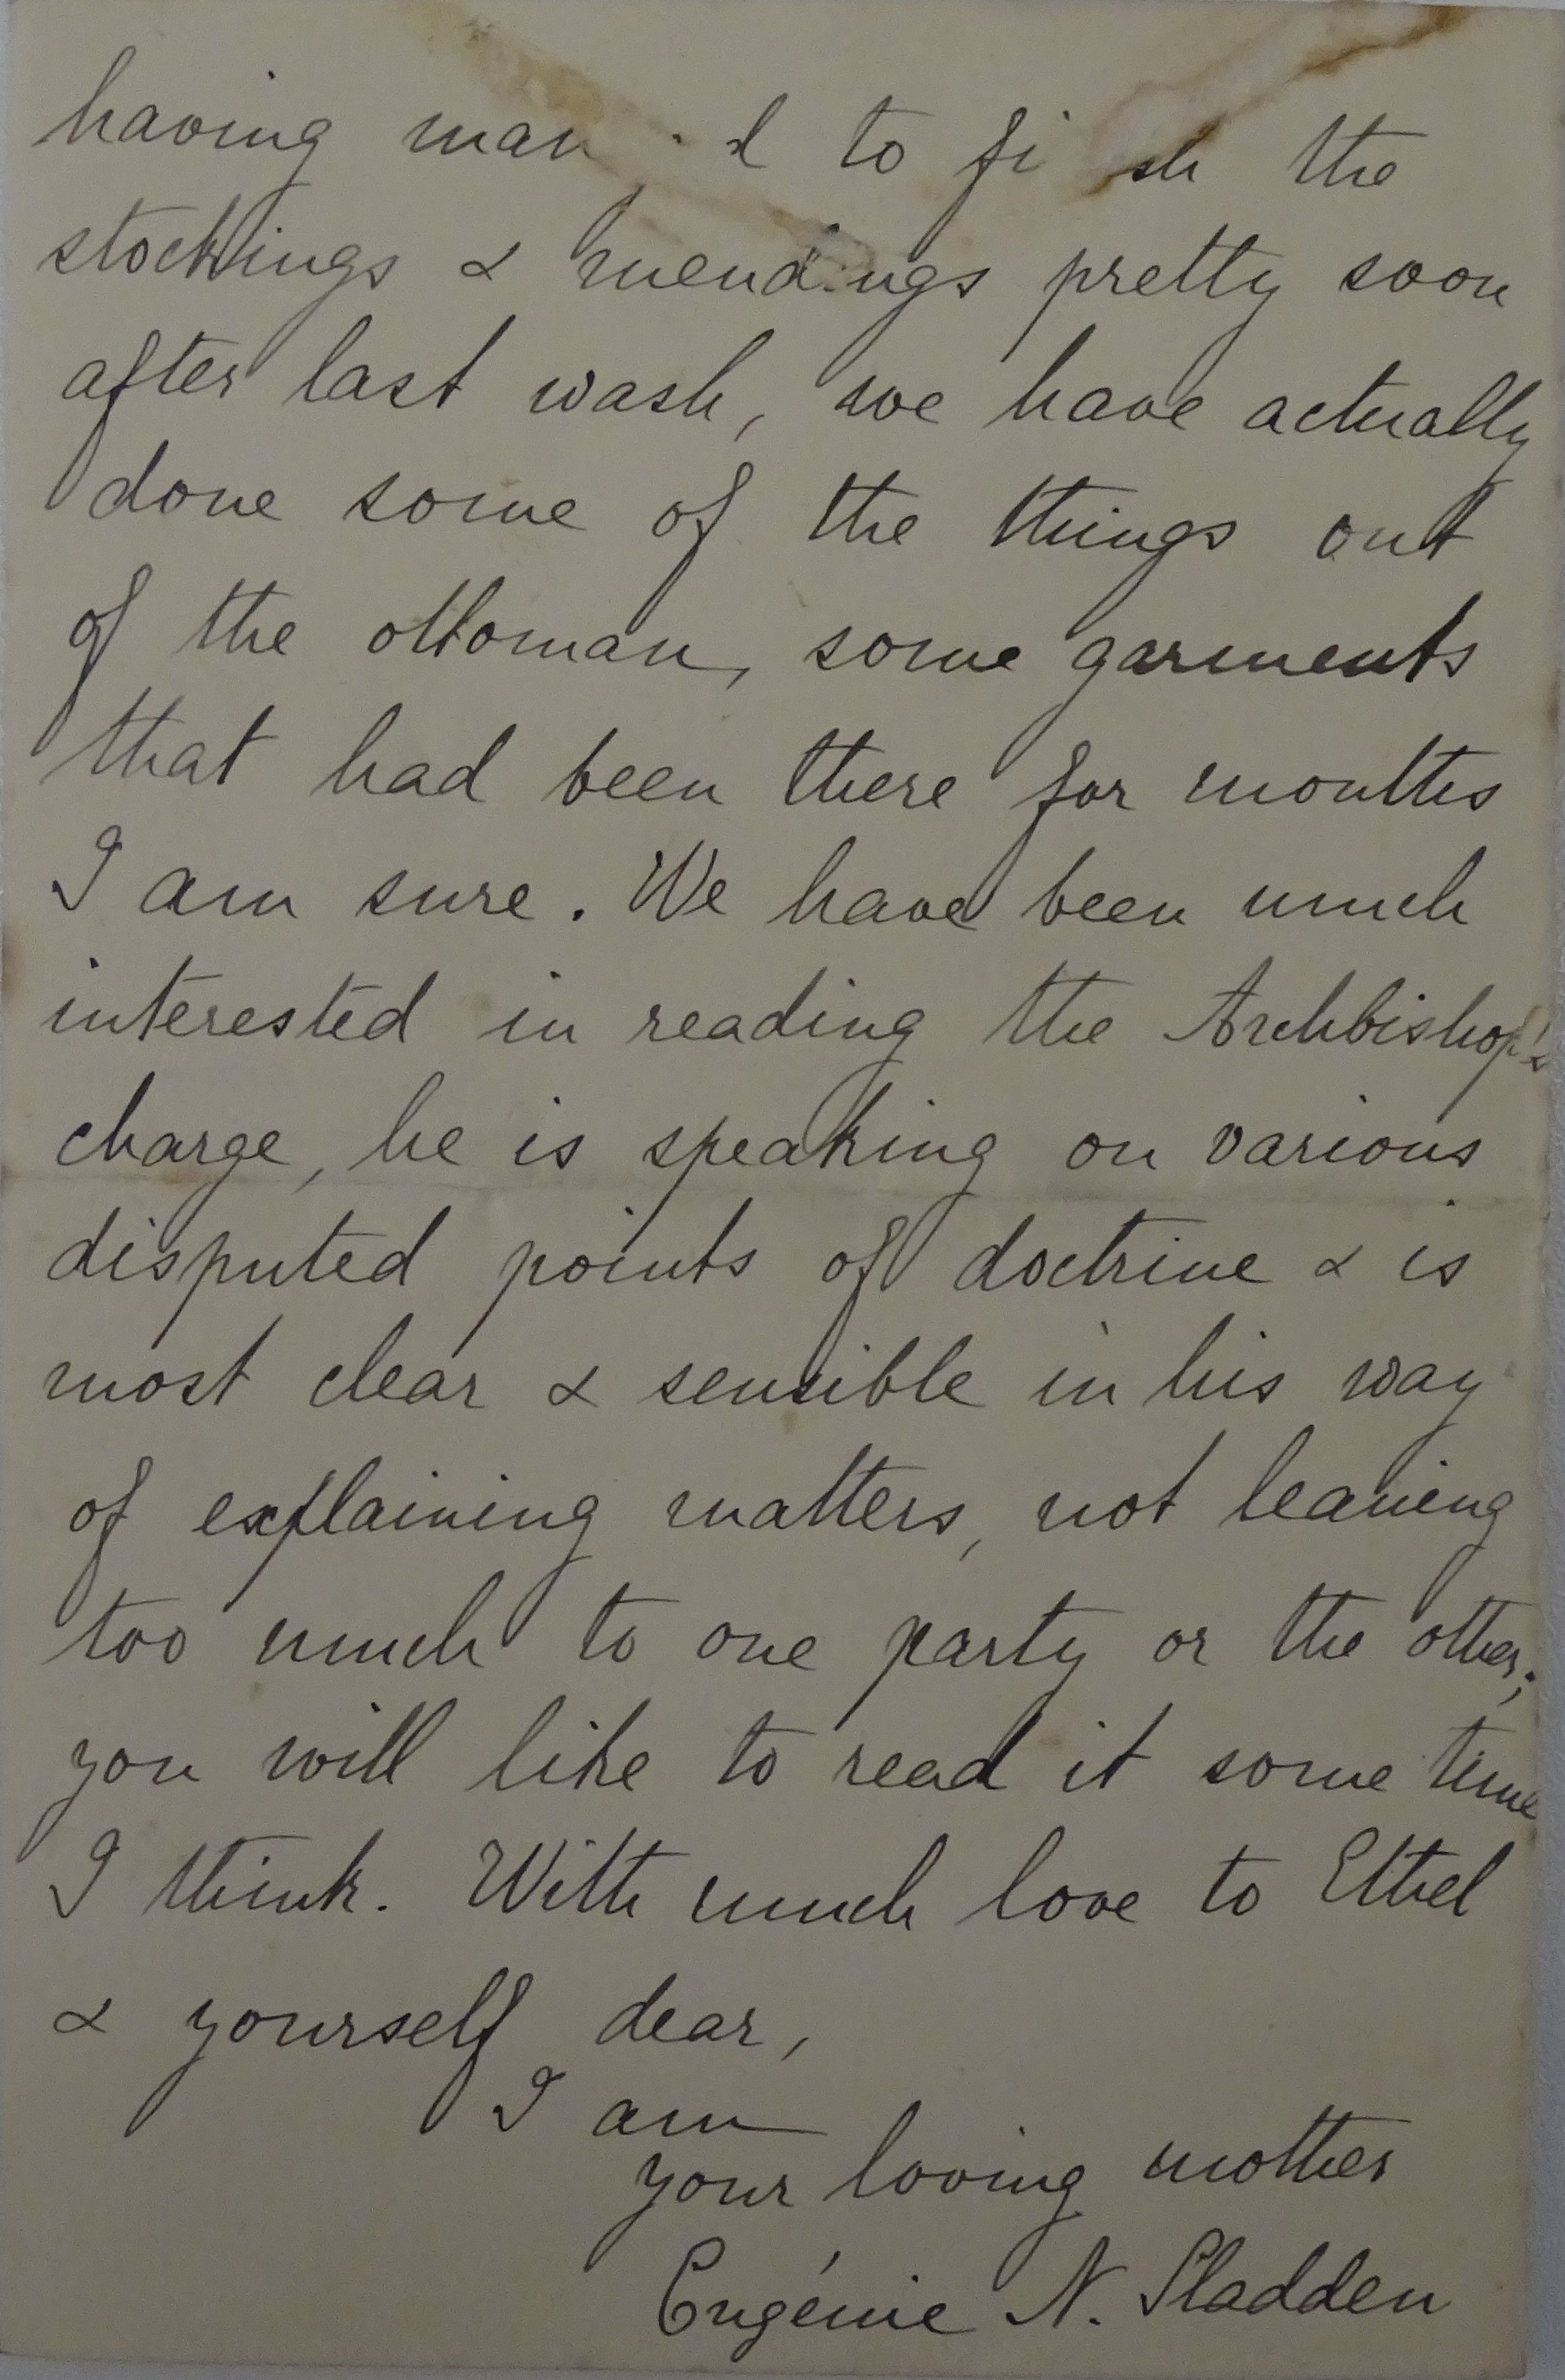 having man d to fi sh the
stockings & mendings pretty soon
after last wash, we have actually
done some of the things out
of the ottoman, some garments
that had been there for months
I am sure. We have been much
interested in reading the Archbishop's
charge, he is speaking on various
disputed points of doctrine & is
most clear & sensible in his way
of explaining matters, not leaning
too much to one party or the other;
you will like to read it some time
I think. With much love to Ethel
& yourself dear,
I am
your loving mother
Eugénie N. Sladden